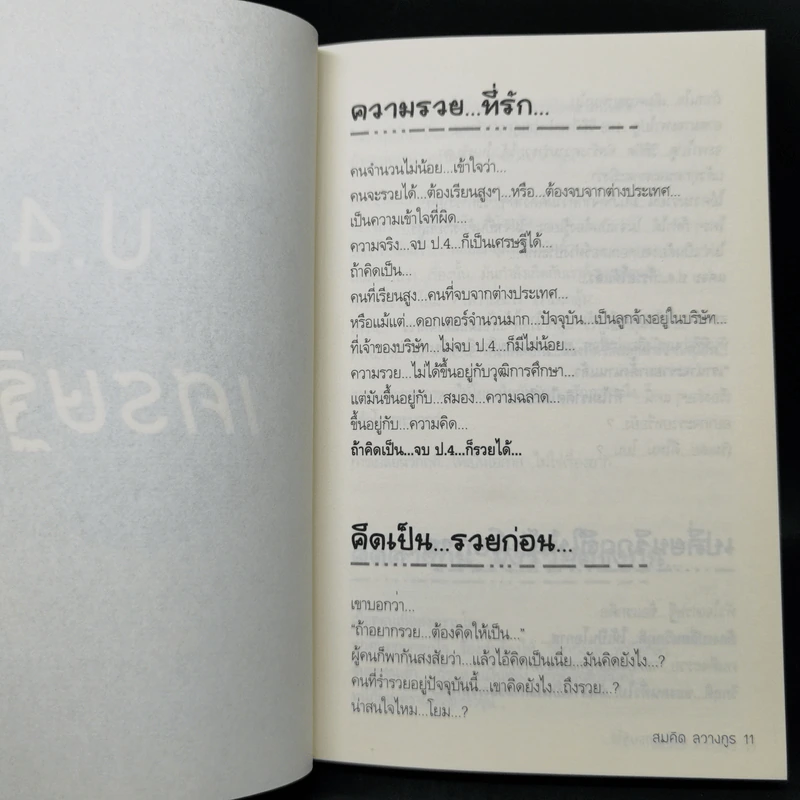 ป.4
เศรษฐ
ความรวย...ที่รัก...
คนจำนวนไม่น้อย...เข้าใจว่า...
คนจะรวยได้...ต้องเรียนสูงๆ...หรือ...ต้องจบจากต่างประเทศ...
เป็นความเข้าใจที่ผิด...
ความจริง...จบ ป.4...ก็เป็นเศรษฐีได้...
ถ้าคิดเป็น...
คนที่เรียนสูง...คนที่จบจากต่างประเทศ...
หรือแม้แต่...ดอกเตอร์จำนวนมาก...ปัจจุบัน...เป็นลูกจ้างอยู่ในบริษัท...
ที่เจ้าของบริษัท...ไม่จบ ป.4...ก็มีไม่น้อย...
ความรวย...ไม่ได้ขึ้นอยู่กับวุฒิการศึกษา...
แต่มันขึ้นอยู่กับ...สมอง...ความฉลาด...
ขึ้นอยู่กับ...ความคิด...
ถ้าคิดเป็น...จบ ป.4...ก็รวยได้...
คิดเป็น...รวยก่อน...
เขาบอกว่า...
“ถ้าอยากรวย...ต้องคิดให้เป็น...”
ผู้คนก็พากันสงสัยว่า...แล้วไอ้คิดเป็นเนี่ย...มันคิดยังไง...?
คนที่ร่ำรวยอยู่ปัจจุบันนี้...เขาคิดยังไง...ถึงรวย...?
น่าสนใจไหม...โยม...?
สมคิด ลวางกูร 11